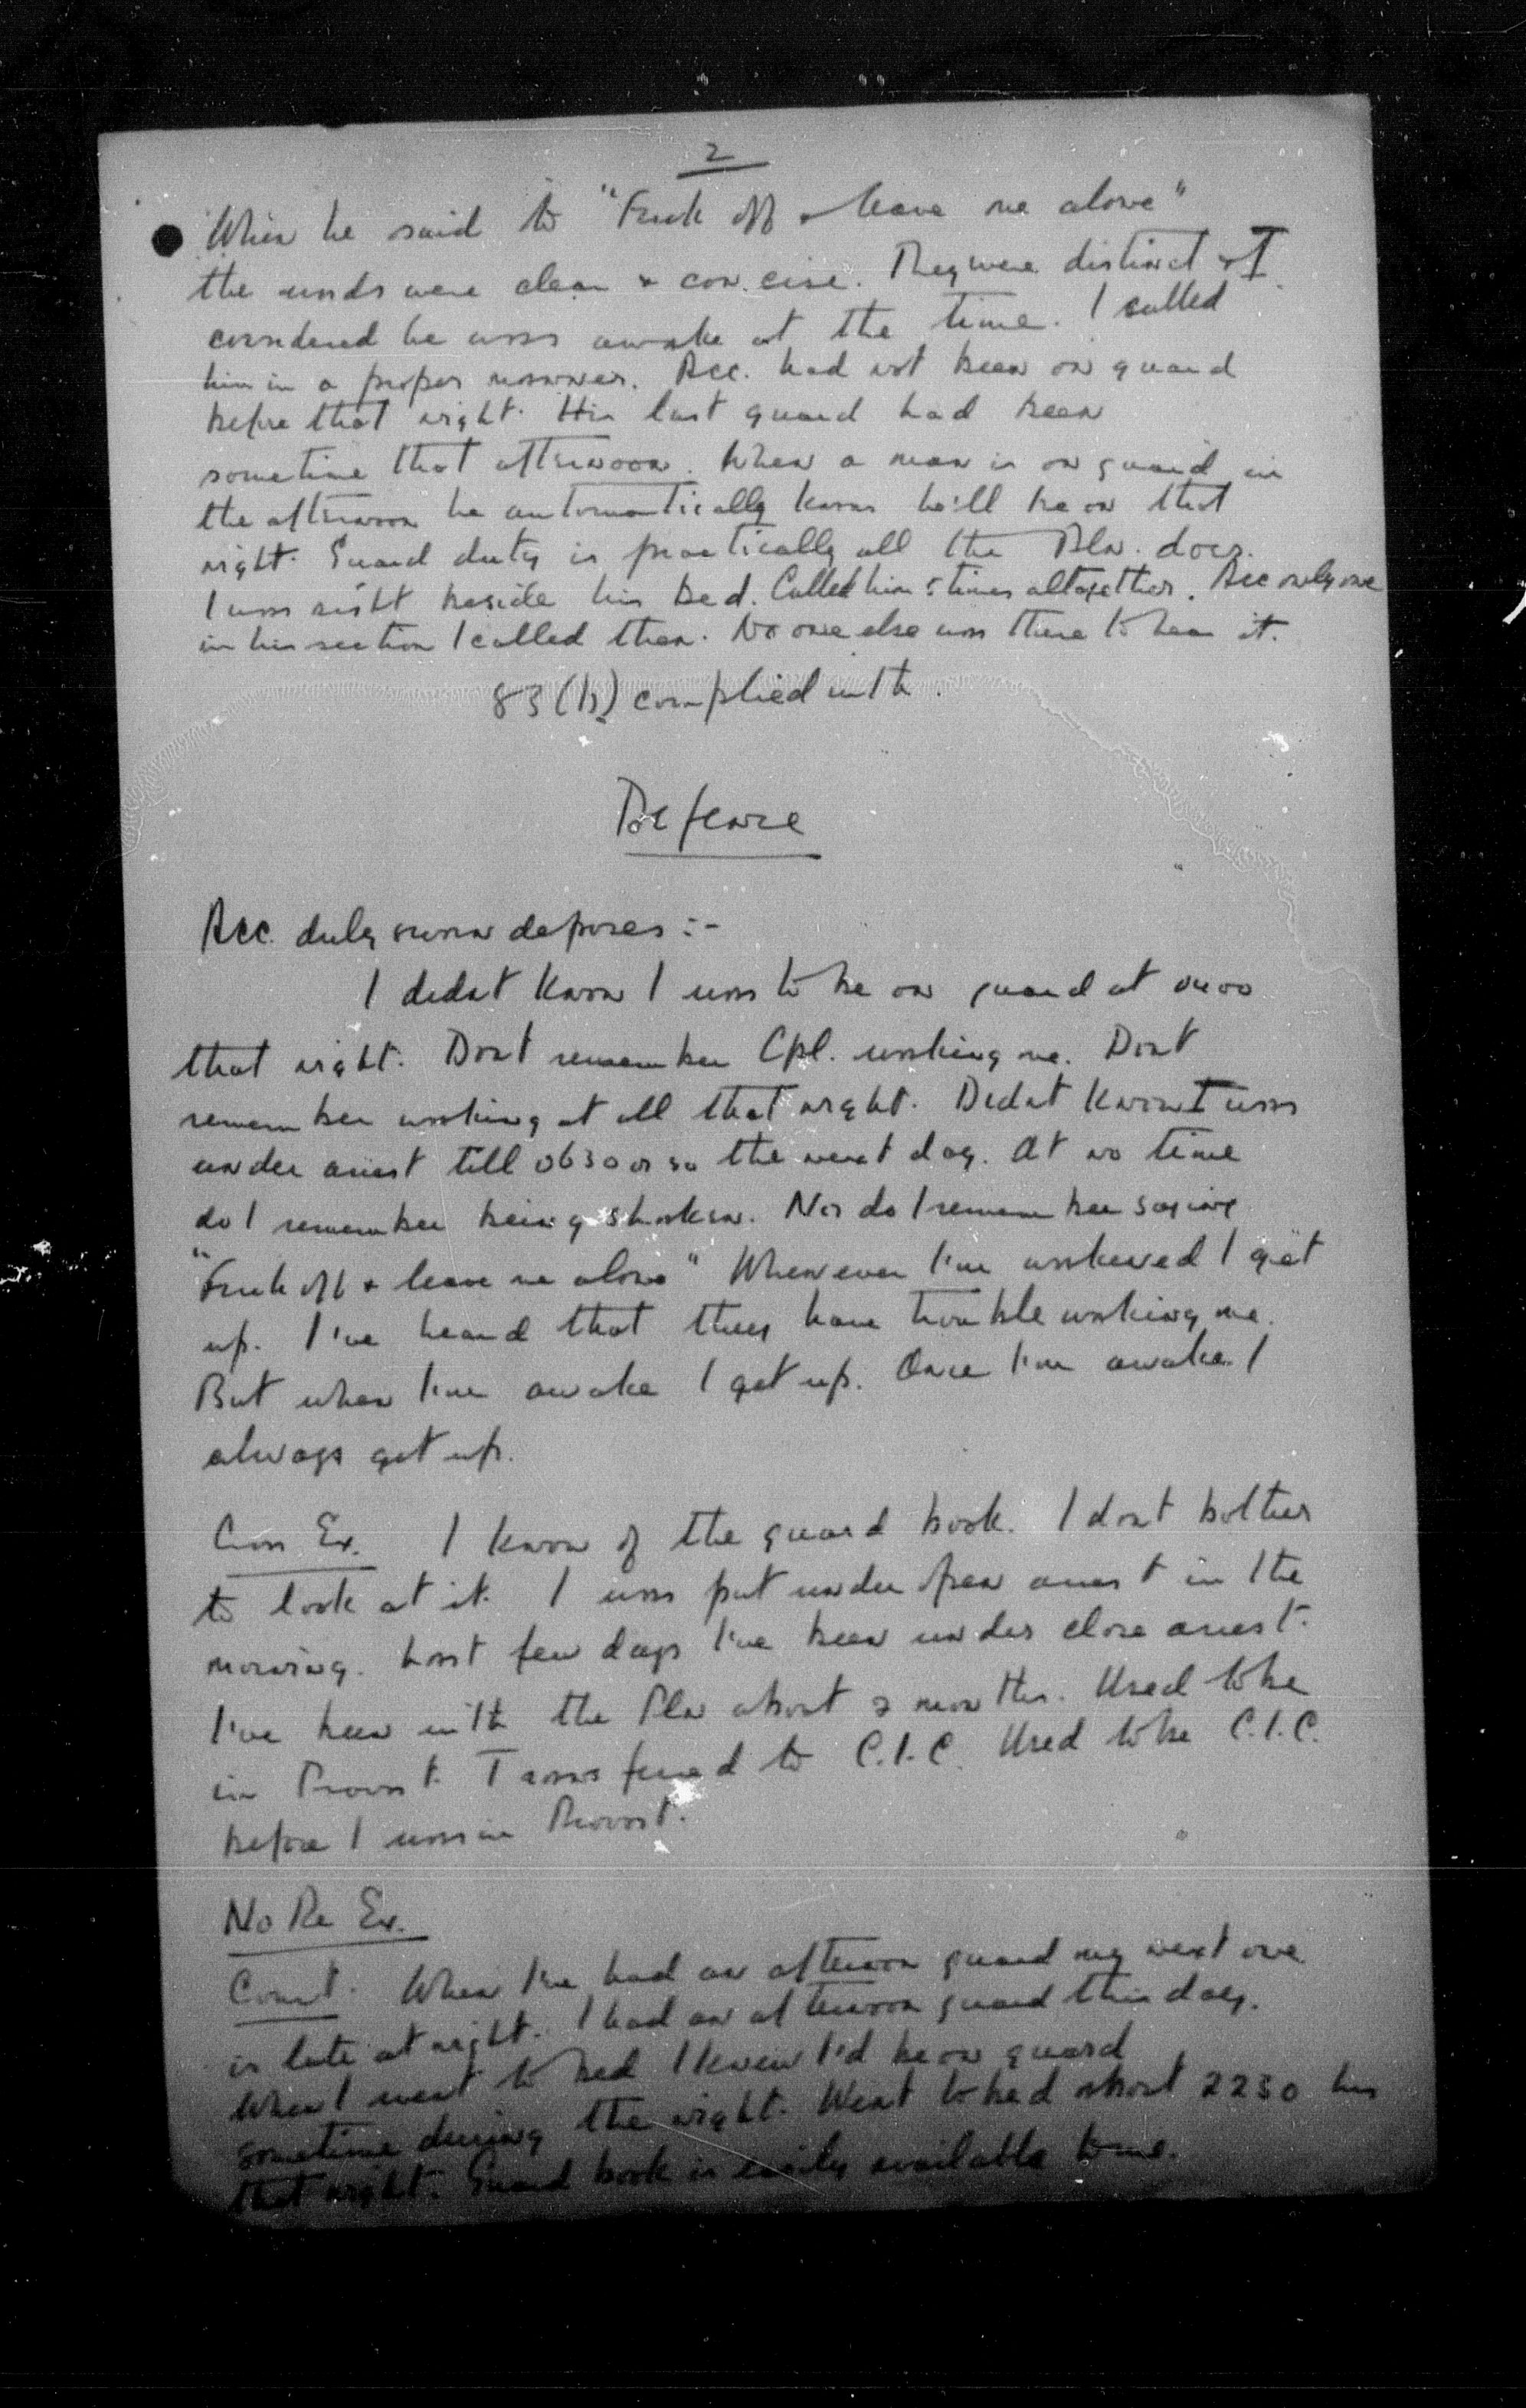 2
When he said to "Fuck off & leave me alone"
the words were clear & concise. They were distinct & I
considered he was awake at the time. I called
him in a proper manner. Acc. had not been on guard
before that night. His last guard had been
sometime that afternoon. When a man is on guard in
the afternoon he automatically knows he'll be on that
night. Guard duty is practically all the Pln. does.
I was right beside his bed. Called him 5 times altogether. Acc only one
in his section I called then. No one else was there to hear it.
83 (b) complied with.
Defence
Acc. duly sworn deposes :-
I didnt know I was to be on guard at 0400
that night. Dont remember Cpl. waking me. Dont
remember waking at all that night. Didnt know I was
under arrest till 0630 or so the next day. At no time
do I remember being shaken. Nor do I remember saying
"Fuck off & leave me alone" Whenever I'm wakened I get
up. I've heard that they have trouble waking me.
But when I'm awake I get up. Once I'm awake I
always get up.
Cross Ex. I know of the guard book. I dont bother
to look at it. I was put under open arrest in the
morning. Last few days I've been under close arrest.
I've been with the Pln about 2 months. Used to be
in Provost. Transferred to C.I.C. Used to be C.I.C.
before I was in Provost.
No Re Ex.
Court. When I've had an afternoon guard my next one
is late at night. I had an afternoon guard this day.
When I went to bed I knew I'd be on guard
sometime during the night. Went to bed about 2230 hrs
that night. Guard book is easily available to me.